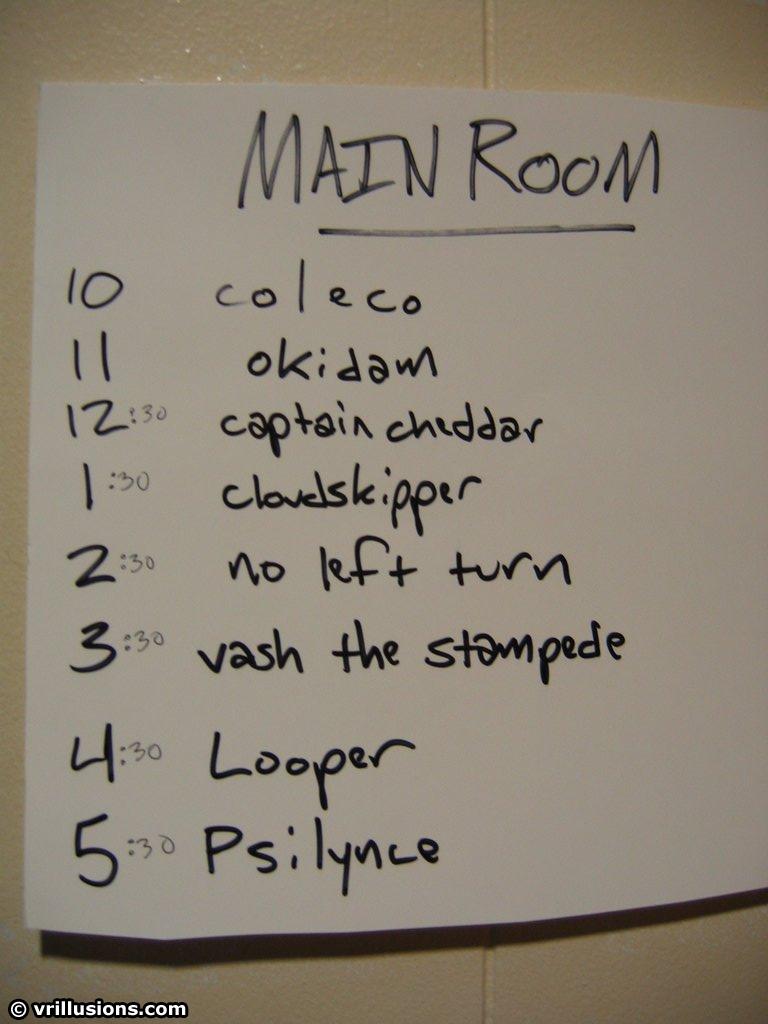 MAIN ROOM
10 coleco
11 okidam
12:30 captain cheddar
1:30 cloudskipper
2:30 no left turn
3:30 vash the stampede
4:30 Looper
5:30 Psilynce
© vrillusions.com